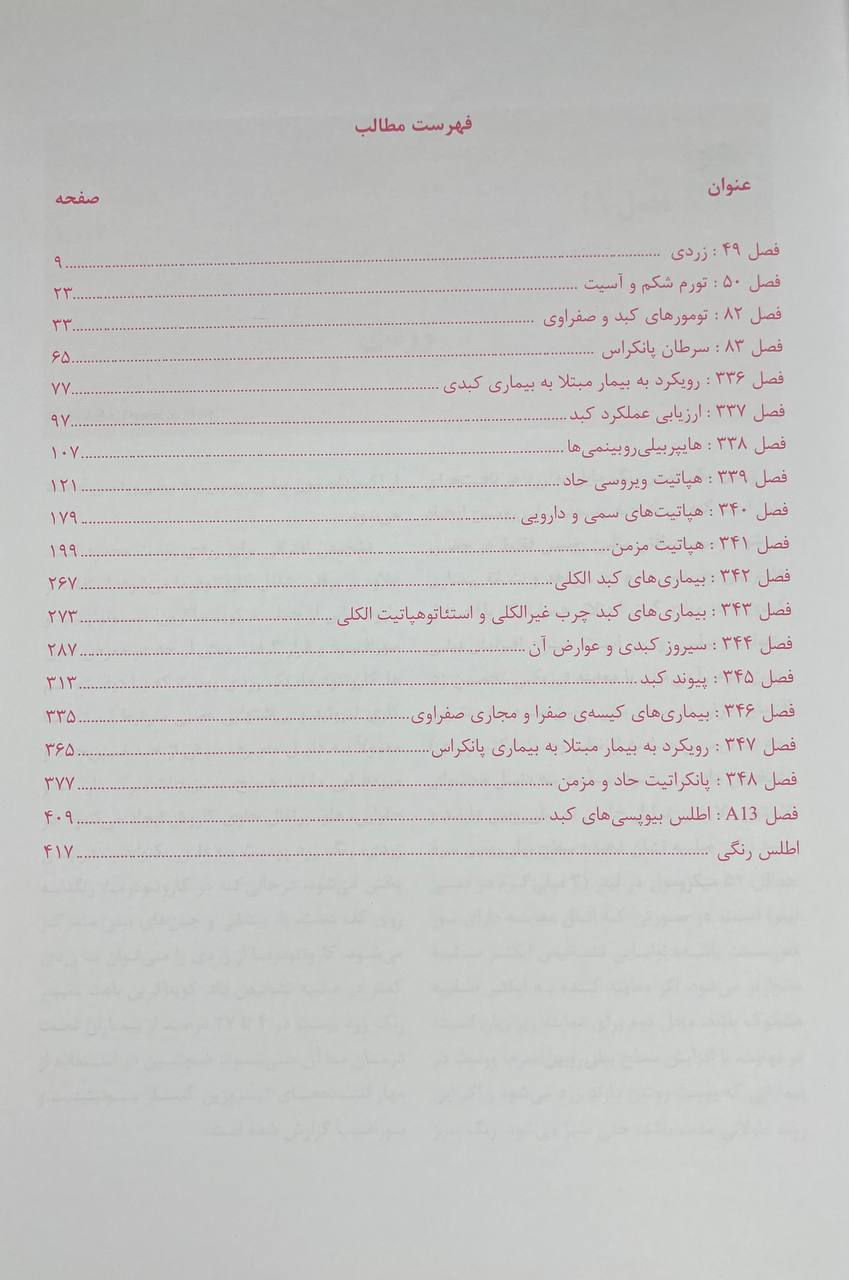 فهرست مطالب
عنوان
صفحه
فصل ۴۹ : زردی ........ ۹
فصل ۵۰ : تورم شکم و آسیت ........ ۲۳
فصل ۸۲ : تومورهای کبد و صفراوی ........ ۳۳
فصل ۸۳ : سرطان پانکراس ........ ۶۵
فصل ۳۳۶ : رویکرد به بیمار مبتلا به بیماری کبدی ........ ۷۷
فصل ۳۳۷ : ارزیابی عملکرد کبد ........ ۹۷
فصل ۳۳۸ : هایپربیلی‌روبینمی‌ها ........ ۱۰۷
فصل ۳۳۹ : هپاتیت ویروسی حاد ........ ۱۲۱
فصل ۳۴۰ : هپاتیت‌های سمی و دارویی ........ ۱۷۹
فصل ۳۴۱ : هپاتیت مزمن ........ ۱۹۹
فصل ۳۴۲ : بیماری‌های کبد الکلی ........ ۲۶۷
فصل ۳۴۳ : بیماری‌های کبد چرب غیرالکلی و استئاتوهپاتیت الکلی ........ ۲۷۳
فصل ۳۴۴ : سیروز کبدی و عوارض آن ........ ۲۸۷
فصل ۳۴۵ : پیوند کبد ........ ۳۱۳
فصل ۳۴۶ : بیماری‌های کیسه‌ی صفرا و مجاری صفراوی ........ ۳۳۵
فصل ۳۴۷ : رویکرد به بیمار مبتلا به بیماری پانکراس ........ ۳۶۵
فصل ۳۴۸ : پانکراتیت حاد و مزمن ........ ۳۷۷
فصل A13 : اطلس بیوپسی‌های کبد ........ ۴۰۹
اطلس رنگی ........ ۴۱۷